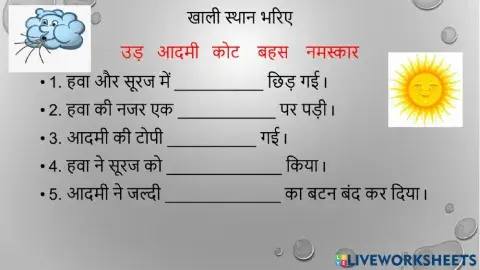 खाली स्थान भरिए
उड़ आदमी कोट बहस नमस्कार
• 1. हवा और सूरज में __________ छिड़ गई।
• 2. हवा की नजर एक ___________ पर पड़ी।
• 3. आदमी की टोपी __________ गई।
• 4. हवा ने सूरज को _____________ किया।
• 5. आदमी ने जल्दी _____________ का बटन बंद कर दिया।
LIVEWORKSHEETS